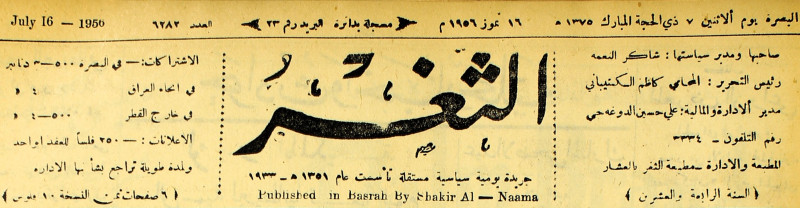 البصرة يوم الأثنين ٧ ذي الحجة المبارك ١٣٧٥ هـ
١٦ تموز ١٩٥٦ م
مسجلة بدائرة البريد رقم ٢٣
العدد ٦٢٨٢
July 16 - 1956
صاحبها ومدير سياستها : شاكر النعمه
رئيس التحرير : المحامي كاظم الكشيباني
مدير الأدارة والمالية : علي حسين الدوغه جي
رقم التلفون - ٣٣٣٤
المطبعة والادارة - مطبعة الثغر بالعشار
( السنة الرابعة والعشرون )
الثغر
جريدة يومية سياسية مستقلة تأسست عام ١٣٥١ هـ - ١٩٣٣
Published in Basrah By Shakir Al - Naama
الاشتراكات : - في البصرة ٥٠٠-٣ دنانير
في انحاء العراق ٤ »
في خارج القطر ٥٠٠-٤ »
الاعلانات : - ٢٥٠ فلساً للعقد الواحد
ولمدة طويلة تراجع بشأنها الاداره
( ٦ صفحات ثمن النسخة ١٠ فلوس )